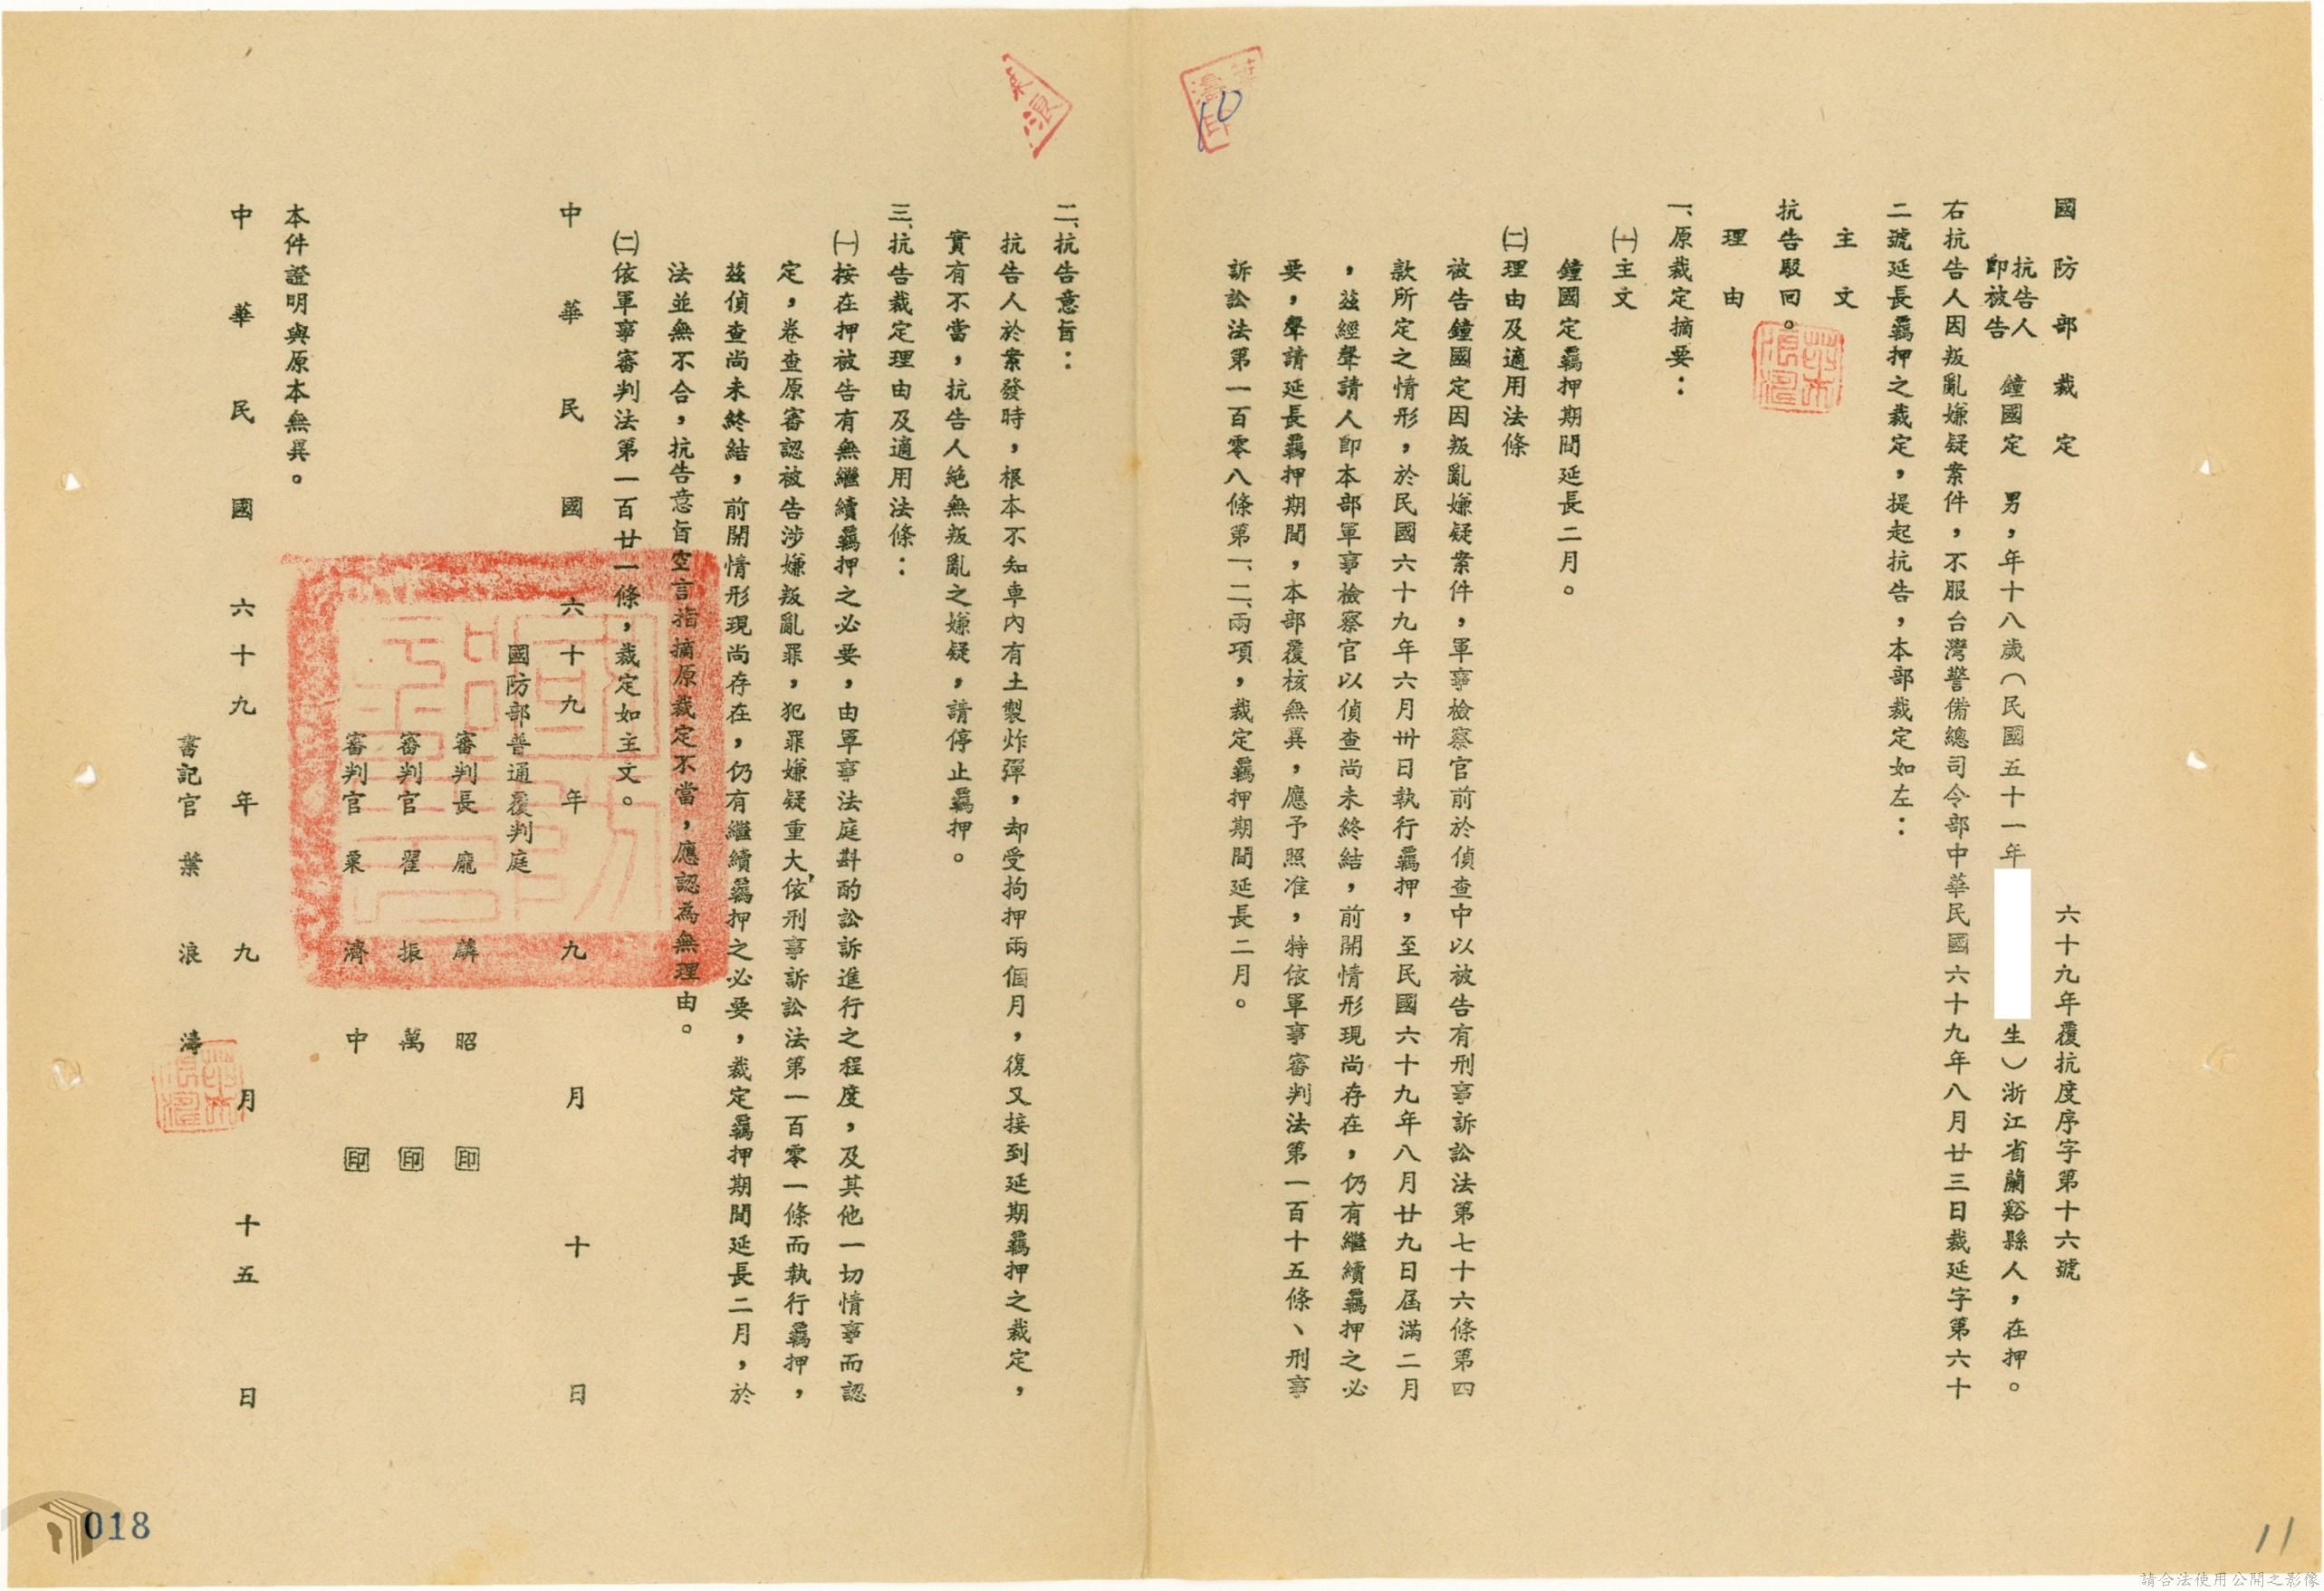 國防部裁定
六十九年覆抗度序字第十六號
抗告人
即被告
鐘國定 男，年十八歲（民國五十一年
生）浙江省蘭谿縣人，在押。
右抗告人因叛亂嫌疑案件，不服台灣警備總司令部中華民國六十九年八月廿三日裁延字第六十
二號延長羈押之裁定，提起抗告，本部裁定如左：
主文
抗告駁回。
理由
一、原裁定摘要：
㈠主文
鐘國定羈押期間延長二月。
㈡理由及適用法條
被告鐘國定因叛亂嫌疑案件，軍事檢察官前於偵查中以被告有刑事訴訟法第七十六條第四
款所定之情形，於民國六十九年六月卅日執行羈押，至民國六十九年八月廿九日屆滿二月
，茲經聲請人即本部軍事檢察官以偵查尚未終結，前開情形現尚存在，仍有繼續羈押之必
要，聲請延長羈押期間，本部覆核無異，應予照准，特依軍事審判法第一百十五條、刑事
訴訟法第一百零八條第一、二、兩項，裁定羈押期間延長二月。
二、抗告意旨：
抗告人於案發時，根本不知車內有土製炸彈，却受拘押兩個月，復又接到延期羈押之裁定，
實有不當，抗告人絕無叛亂之嫌疑，請停止羈押。
三、抗告裁定理由及適用法條：
㈠按在押被告有無繼續羈押之必要，由軍事法庭斟酌訟訴進行之程度，及其他一切情事而認
定，卷查原審認被告涉嫌叛亂罪，犯罪嫌疑重大，依刑事訴訟法第一百零一條而執行羈押，
茲偵查尚未終結，前開情形現尚存在，仍有繼續羈押之必要，裁定羈押期間延長二月，於
法並無不合，抗告意旨空言指摘原裁定不當，應認為無理由。
㈡依軍事審判法第一百廿一條，裁定如主文。
中華民國六十九年九月十日
國防部普通覆判庭
審判長 龐麟昭 印
審判官 翟振萬 印
審判官 粟濟中 印
本件證明與原本無異。
中華民國六十九年九月十五日
書記官 葉浪濤
10
018
11
請合法使用公開之影像